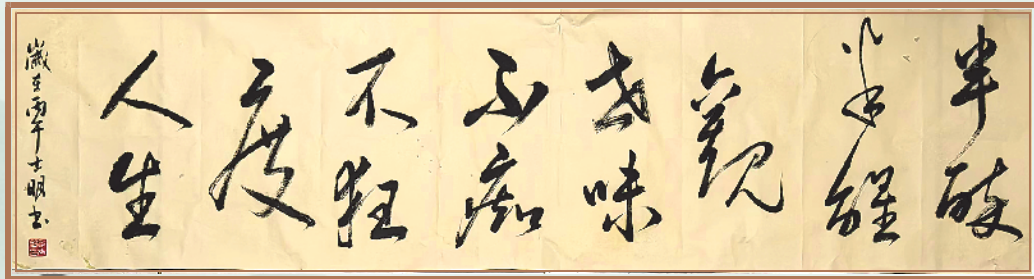 半醉
半醒
观
世味
不痴
不狂
度
人生
岁在丙午士明书